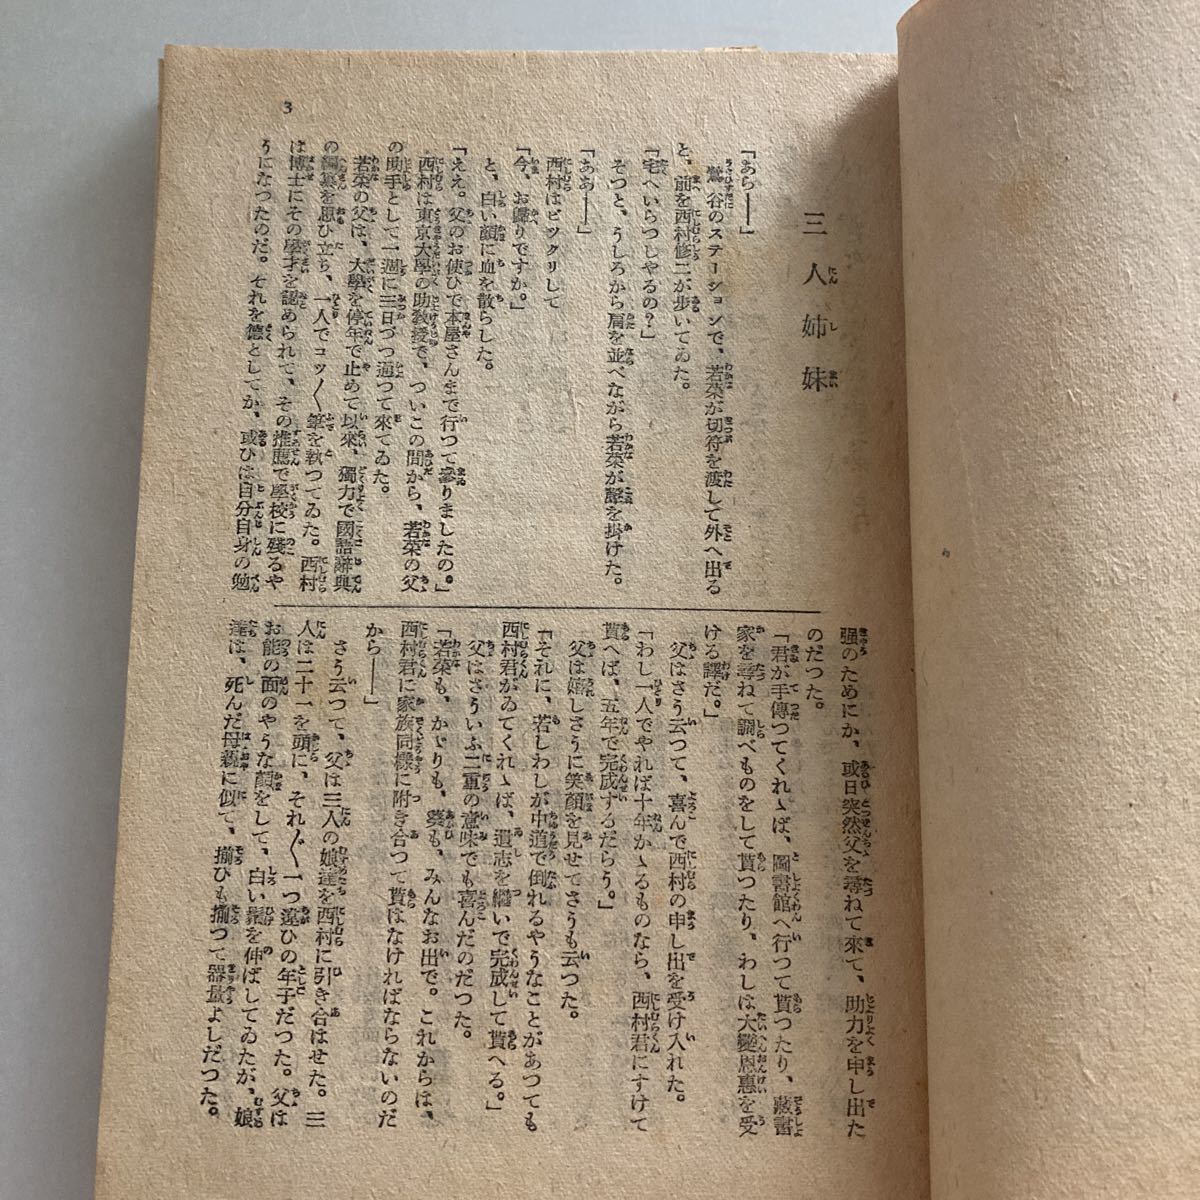 3
三人姉妹
「あら――」
鶯谷のステーションで、若菜が切符を渡して外へ出る
と、前を西村修二が歩いてゐた。
「宅へいらつしやるの？」
そつと、うしろから肩を並べながら若菜が聲を掛けた。
「ああ――」
西村はビツクリして
「今、お歸りですか。」
と、白い顔に血を散らした。
「ええ。父のお使ひで本屋さんまで行つて參りましたの。」
西村は東京大學の助教授で、ついこの間から、若菜の父
の助手として一週に三日づつ通つて來てゐた。
若菜の父は、大學を停年で止めて以來、獨力で國語辭典
の編纂を思ひ立ち、一人でコツ〳〵筆を執つてゐた。西村
は博士にその學才を認められて、その推薦で學校に殘るや
うになつたのだ。それを德としてか、或ひは自分自身の勉
强のためにか、或日突然父を尋ねて來て、助力を申し出た
のだつた。
「君が手傳つてくれゝば、圖書館へ行つて貰つたり、藏書
家を尋ねて調べものをして貰つたり、わしは大變恩惠を受
ける譯だ。」
父はさう云つて、喜んで西村の申し出を受け入れた。
「わし一人でやれば十年かゝるものなら、西村君にすけて
貰へば、五年で完成するだらう。」
父は嬉しさうに笑顔を見せてさうも云つた。
「それに、若しわしが中道で倒れるやうなことがあつても
西村君がゐてくれゝば、遺志を繼いで完成して貰へる。」
父はさういふ二重の意味でも喜んだのだつた。
「若菜も、かゞりも、葵も、みんなお出で。これからは、
西村君に家族同樣に附き合つて貰はなければならないのだ
から――」
さう云つて、父は三人の娘達を西村に引き合はせた。三
人は二十一を頭に、それ〴〵一つ違ひの年子だつた。父は
お能の面のやうな顔をして、白い髯を伸ばしてゐたが、娘
達は、死んだ母親に似て、揃ひも揃つて器量よしだつた。